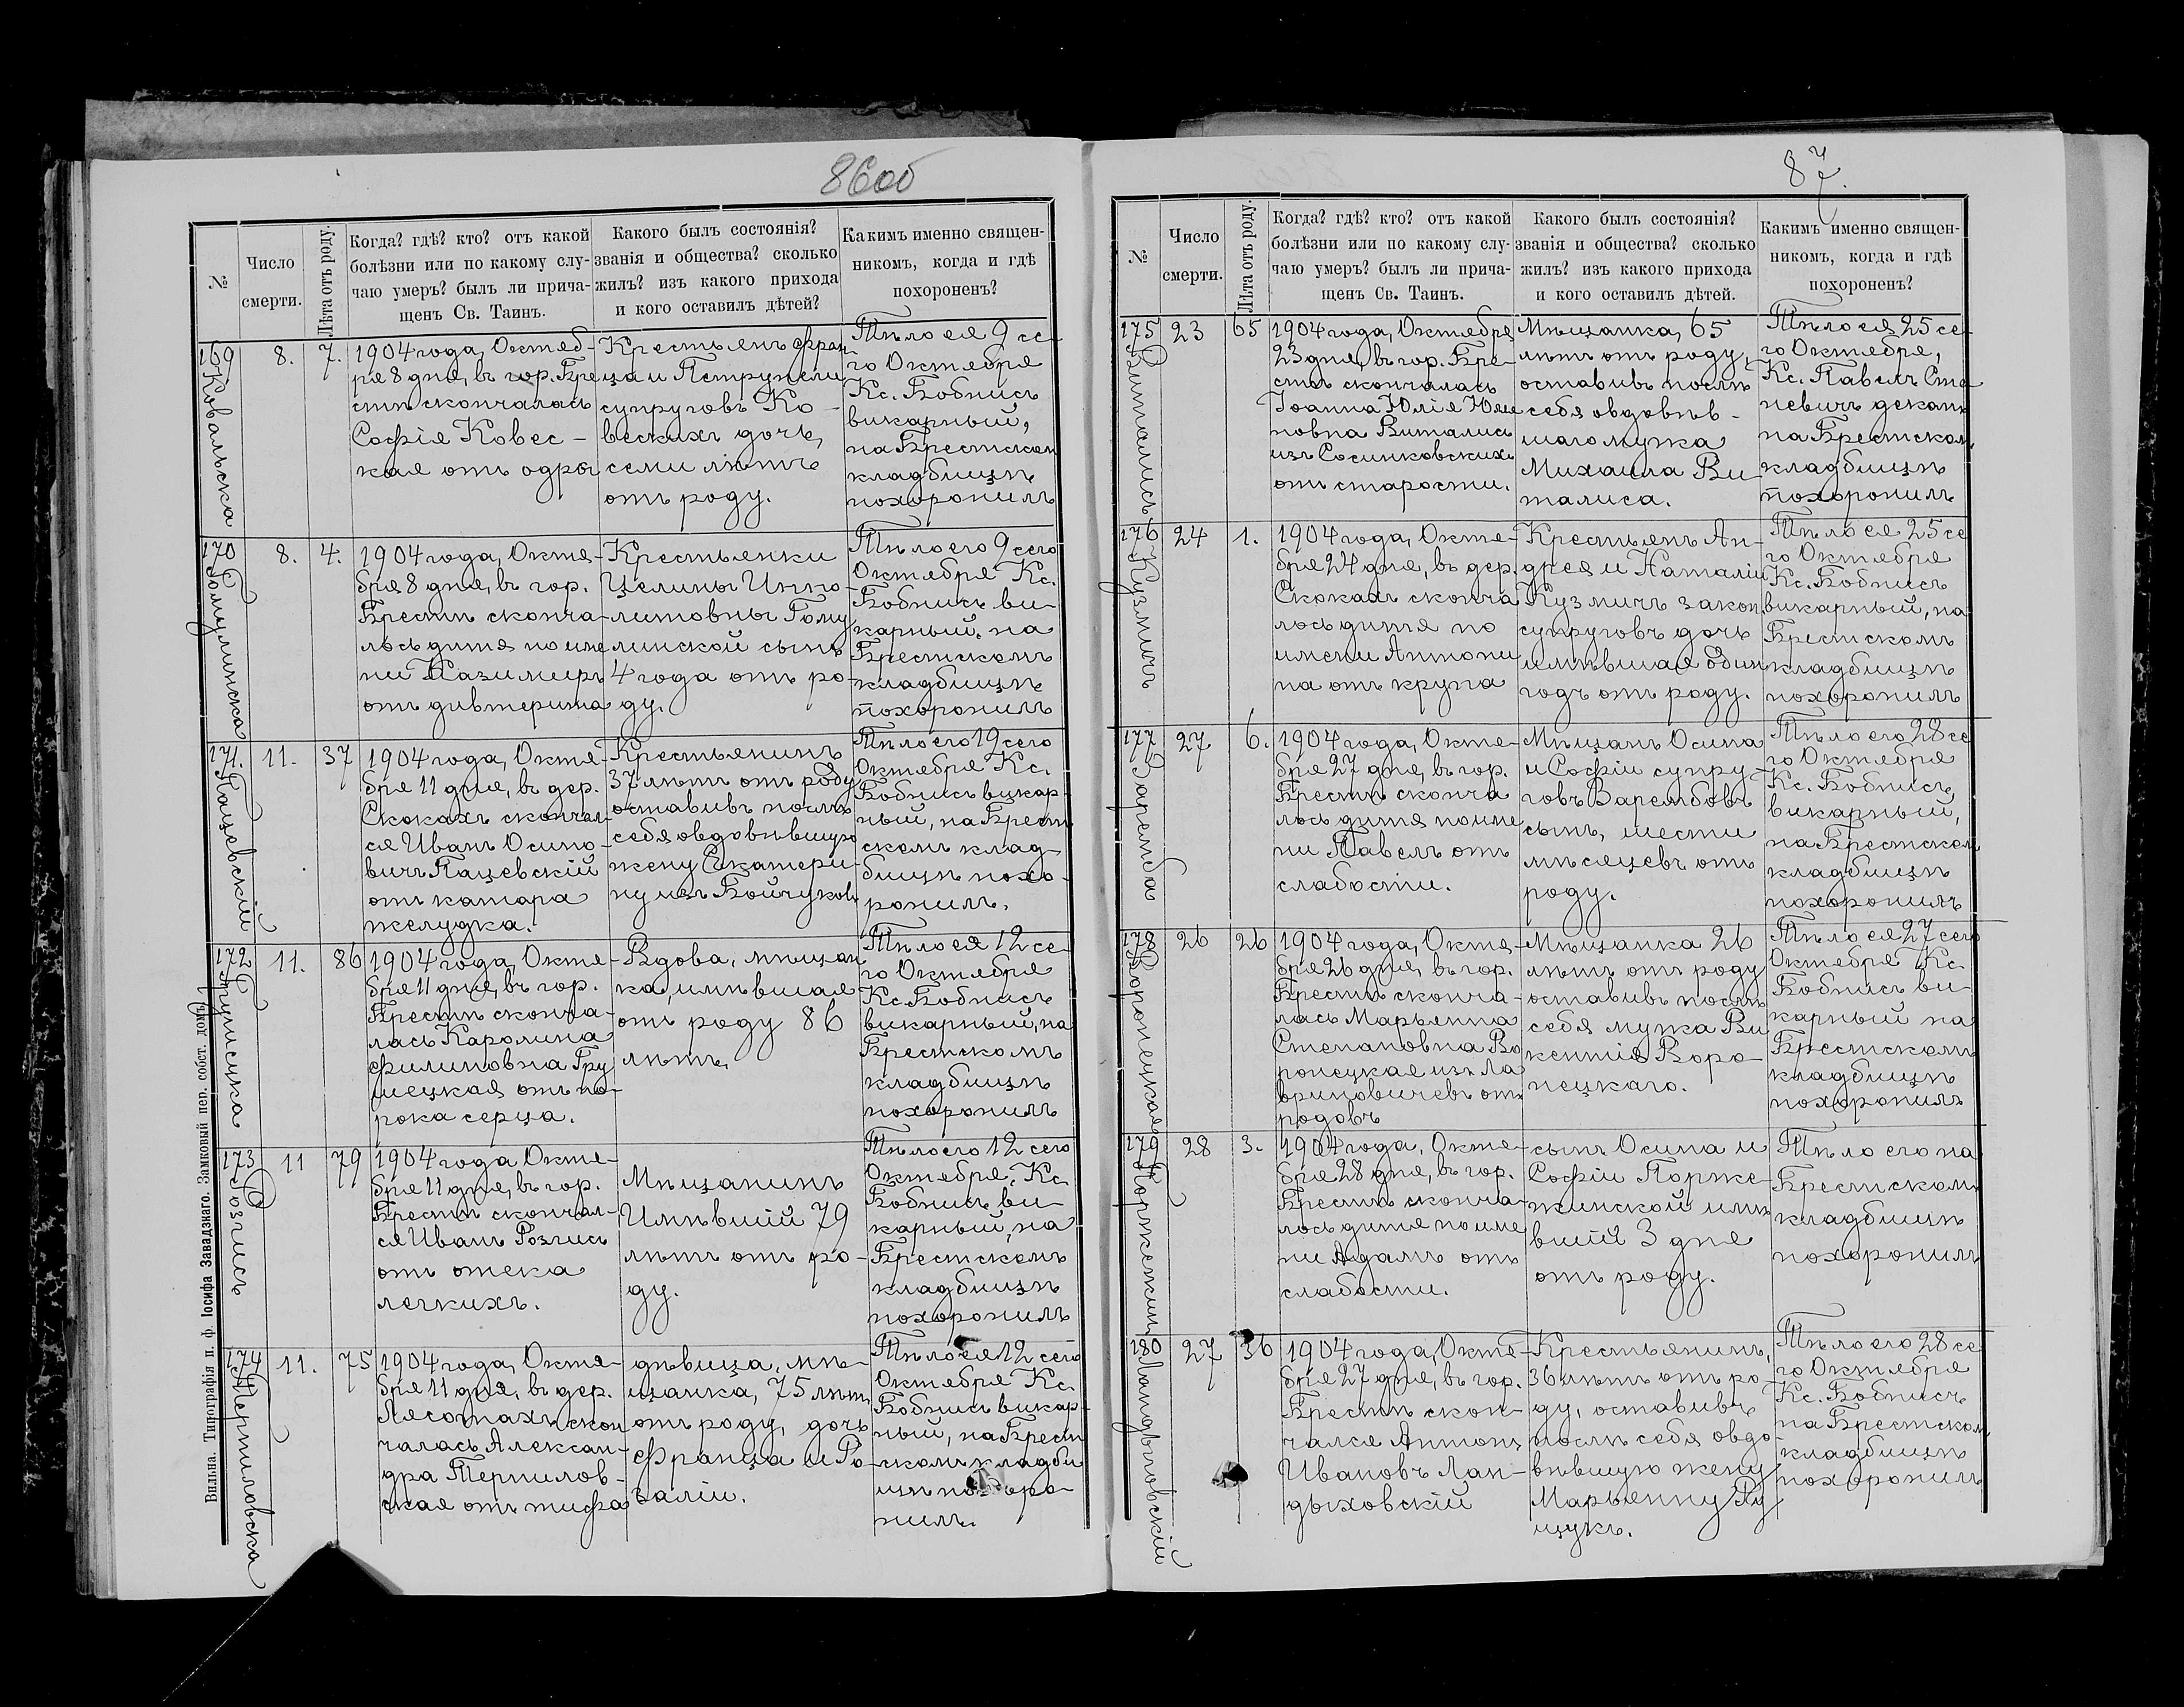 86об
№
Число
смерти.
Лѣта отъ роду.
Когда? гдѣ? кто? отъ какой
болѣзни или по какому слу-
чаю умеръ? былъ ли прича-
щенъ Св. Таинъ.
Какого былъ состоянія?
званія и общества? сколько
жилъ? изъ какого прихода
и кого оставилъ дѣтей?
Какимъ именно священ-
никомъ, когда и гдѣ
похороненъ?
169
Ковальска
8.
7.
1904 года, Октяб-
ря 8 дня, въ гор. Бре
стѣ скончалась
Софія Ковес-
кая отъ
Крестьянъ Фран
ца и
супруговъ Ко-
вескихъ дочь,
семи лѣтъ
отъ роду.
Тѣло ея 9 се
го Октября
Кс. Бобнисъ
викарный,
на Брестском
кладбищѣ
похоронилъ
170
Гомулинска
8.
4.
1904 года, Октя-
бря 8 дня, въ гор.
Брестѣ сконча-
лось дитя по име
ни Казимиръ
отъ дивтерита
Крестьянки
Целины Иппо-
литовны Гому
линской сынъ
4 года отъ ро-
ду.
Тѣло его 9 сего
Октября Кс.
Бобнисъ ви-
карный, на
Брестскомъ
кладбищѣ
похоронилъ
171.
Пацевскій
11.
37
1904 года, Октя-
бря 11 дня, въ дер.
Скокахъ скончал-
ся Иванъ Осипо-
вичъ Пацевскій
отъ катара
желудка.
Крестьянинъ
37 лѣтъ отъ роду
оставивъ послѣ
себя овдовѣвшую
жену Екатери-
ну изъ Бойчуковъ
Тѣло его 19 сего
Октября Кс.
Бобнисъ викар-
ный, на Брест
скомъ клад-
бищѣ похо-
ронилъ.
172
11.
86
1904 года, Октя-
бря 11 дня, въ гор.
Брестѣ сконча-
лась Каролина
Филиповна Гру
шецкая отъ по-
рока серца.
Вдова, мѣщан
ка, имѣвшая
отъ роду 86
лѣтъ.
Тѣло ея 12 се-
го Октября
Кс. Бобнисъ
викарный, на
Брестскомъ
кладбищѣ
похоронилъ
173
Розгисъ
11
79
1904 года Октя-
бря 11 дня, въ гор.
Брестѣ скончал-
ся Иванъ Розгисъ
отъ отека
легкихъ.
Мѣщанинъ
Имѣвшій 79
лѣтъ отъ ро-
ду.
Тѣло его 12 сего
Октября, Кс.
Бобнисъ ви-
карный, на
Брестскомъ
кладбищѣ
похоронилъ
174
Терпиловска
11.
75
1904 года, Октя-
бря 11 дня, въ дер.
Лясотахъ скон
чалась Алексан-
дра Терпилов-
ская отъ тифа
дѣвица, мѣ-
щанка, 75 лѣтъ,
отъ роду, дочь
Франца и Ро-
заліи.
Тѣло ея 12 сего
Октября Кс.
Бобнисъ викар-
ный, на Брест
скомъ кладби
щѣ похоро-
нилъ.
Вильна. Типографія п. ф. Іосифа Завадзкаго. Замковый пер. собст. домъ
87.
№
Число
смерти.
Лѣта отъ роду.
Когда? гдѣ? кто? отъ какой
болѣзни или по какому слу-
чаю умеръ? былъ ли прича-
щенъ Св. Таинъ.
Какого былъ состоянія?
званія и общества? сколько
жилъ? изъ какого прихода
и кого оставилъ дѣтей.
Какимъ именно священ-
никомъ, когда и гдѣ
похороненъ?
175
Виталисъ
23
65
1904 года, Октября
23 дня, въ гор. Бре-
стѣ скончалась
Іоанна Юлія
новна Виталисъ
изъ Сосинковскихъ
отъ старости.
Мѣщанка, 65
лѣтъ отъ роду,
оставивъ послѣ
себя овдовѣв-
шаго мужа
Михаила Ви
талиса.
Тѣло ея 25 се
го Октября,
Кс. Павелъ Сте
невичъ деканъ
на Брестском
кладбищѣ
похоронилъ
176
Кузмичъ
24
1.
1904 года, Октя-
бря 24 дня, въ дер.
Скокахъ сконча
лось дитя по
имени Антони
на отъ крупа
Крестьянъ Ан-
дрея и Наталіи
Кузмичъ закон.
супруговъ дочь
имѣвшая один
годъ отъ роду.
Тѣло ея 25 се
го Октября
Кс. Бобнисъ
викарный, на
Брестскомъ
кладбищѣ
похоронилъ
177
Заремба
27
6.
1904 года, Октя-
бря 27 дня, въ гор.
Брестѣ сконча
лось дитя по име
ни Павелъ отъ
слабости.
Мѣщанъ Осипа
и Софіи супру-
говъ Зарембовъ
сынъ, шести
мѣсяцевъ отъ
роду.
Тѣло его 28 се
го Октября
Кс. Бобнисъ,
викарный,
на Брестском
кладбищѣ
похоронилъ
178
Воронецкая
26
26
1904 года, Октя-
бря 26 дня, въ гор.
Брестѣ сконча-
лась Марьянна
Степановна Во
ронецкая изъ Ла
вриновичевъ отъ
родовъ
Мѣщанка 26
лѣтъ отъ роду
оставивъ послѣ
себя мужа Ви
кентія Воро-
нецкаго.
Тѣло ея 27 сего
Октября Кс.
Бобнисъ ви-
карный на
Брестскомъ
кладбищѣ
похоронилъ
179
28
3.
1904 года, Октя-
бря 28 дня, въ гор.
Брестѣ сконча-
лось дитя по име
ни Адамъ отъ
слабости.
сынъ Осипа и
Софіи Порже-
жинской имѣ
вшій 3 дня
отъ роду.
Тѣло его на
Брестскомъ
кладбищѣ
похоронилъ
180
Ландыховскій
27
36
1904 года, Октя-
бря 27 дня, въ гор.
Брестѣ скон-
чался Антонъ
Ивановъ Лан-
дыховскій
Крестьянинъ,
36 лѣтъ отъ ро
ду, оставивъ
послѣ себя овдо-
вѣвшую жену
Марьянну Яу
щукъ.
Тѣло его 28 се
го Октября
Кс. Бобнисъ
на Брестском
кладбищѣ
похоронилъ